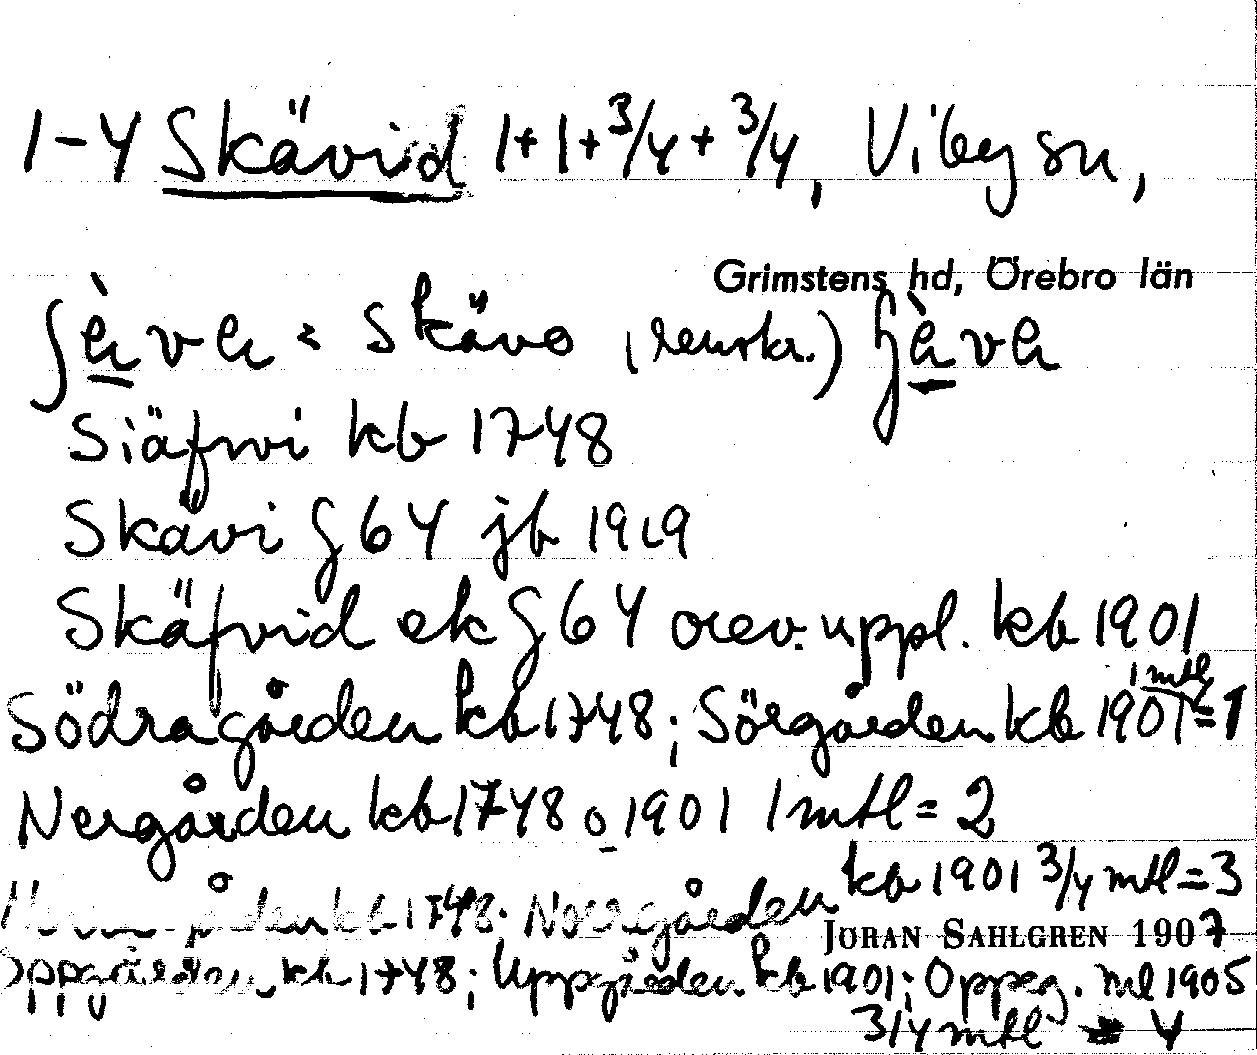 1-4 Skävid 1+1+3/4+3/4, Viby sn,
Grimstens hd, Örebro län
ʃàvɑ = Skäve (renskr.) ʃàvɑ
Siäfwi kb 1748
Skävi § 64 jb 1919
Skäfvid ek § 64 orev. uppl. kb 1901
Södragården kb 1748; Sörgården kb 1901 1 mtl = 1
Nergården kb 1748 o 1901 1 mtl = 2
kb 1748; Norrgården kb 1901 3/4 mtl = 3
JÖRAN SAHLGREN 1907
Oppgården kb 1748; Uppgården kb 1901; Oppeg. ml 1905
3/4 mtl = 4